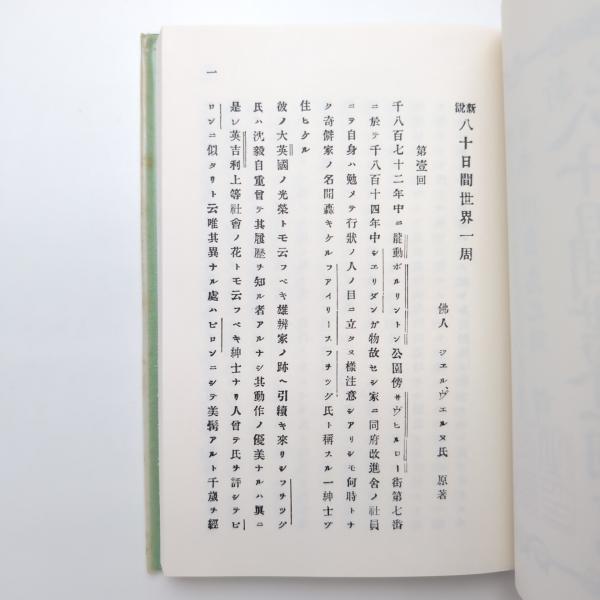 新説 八十日間世界一周
佛人 ジエルヴエルヌ氏 原著
第壹回
千八百七十二年中ニ龍動ボルリントン公園傍サヴヒルロー街第七番
ニ於テ千八百十四年中シエリダンガ物故セシ家ニ同府改進舍ノ社員
ニヲ自身ハ勉メテ行狀ノ人ノ目ニ立タヌ樣注意シアリシモ何時トナ
ク奇僻家ノ名聞轟キケルフアイリースフヲツグ氏ト稱スル一紳士ゾ
住ヒケル
彼ノ大英國ノ光榮トモ云フベキ雄辨家ノ跡ヘ引續キ來リシフヲツグ
氏ハ沈毅自重曾テ其履歷ヲ知ル者アルナシ其動作ノ優美ナルハ眞ニ
是レ英吉利上等社會ノ花トモ云フベキ紳士ナリ人曾テ氏ヲ評シテビ
ロンニ似タリト云唯其異ナル處ハビロンニシテ美髯アルト千歲ヲ經
一